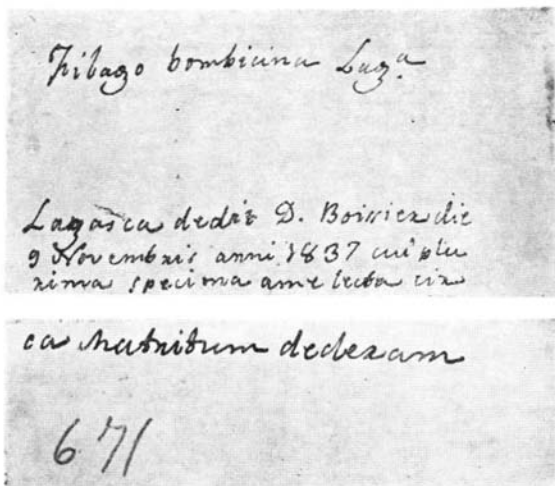 Filago bombicina Lag.ª
Lagasca dedit D. Boissier die
9 Novembris anni 1837 cui plu
rima specima a me lecta cir
ca Matritum dederam
671